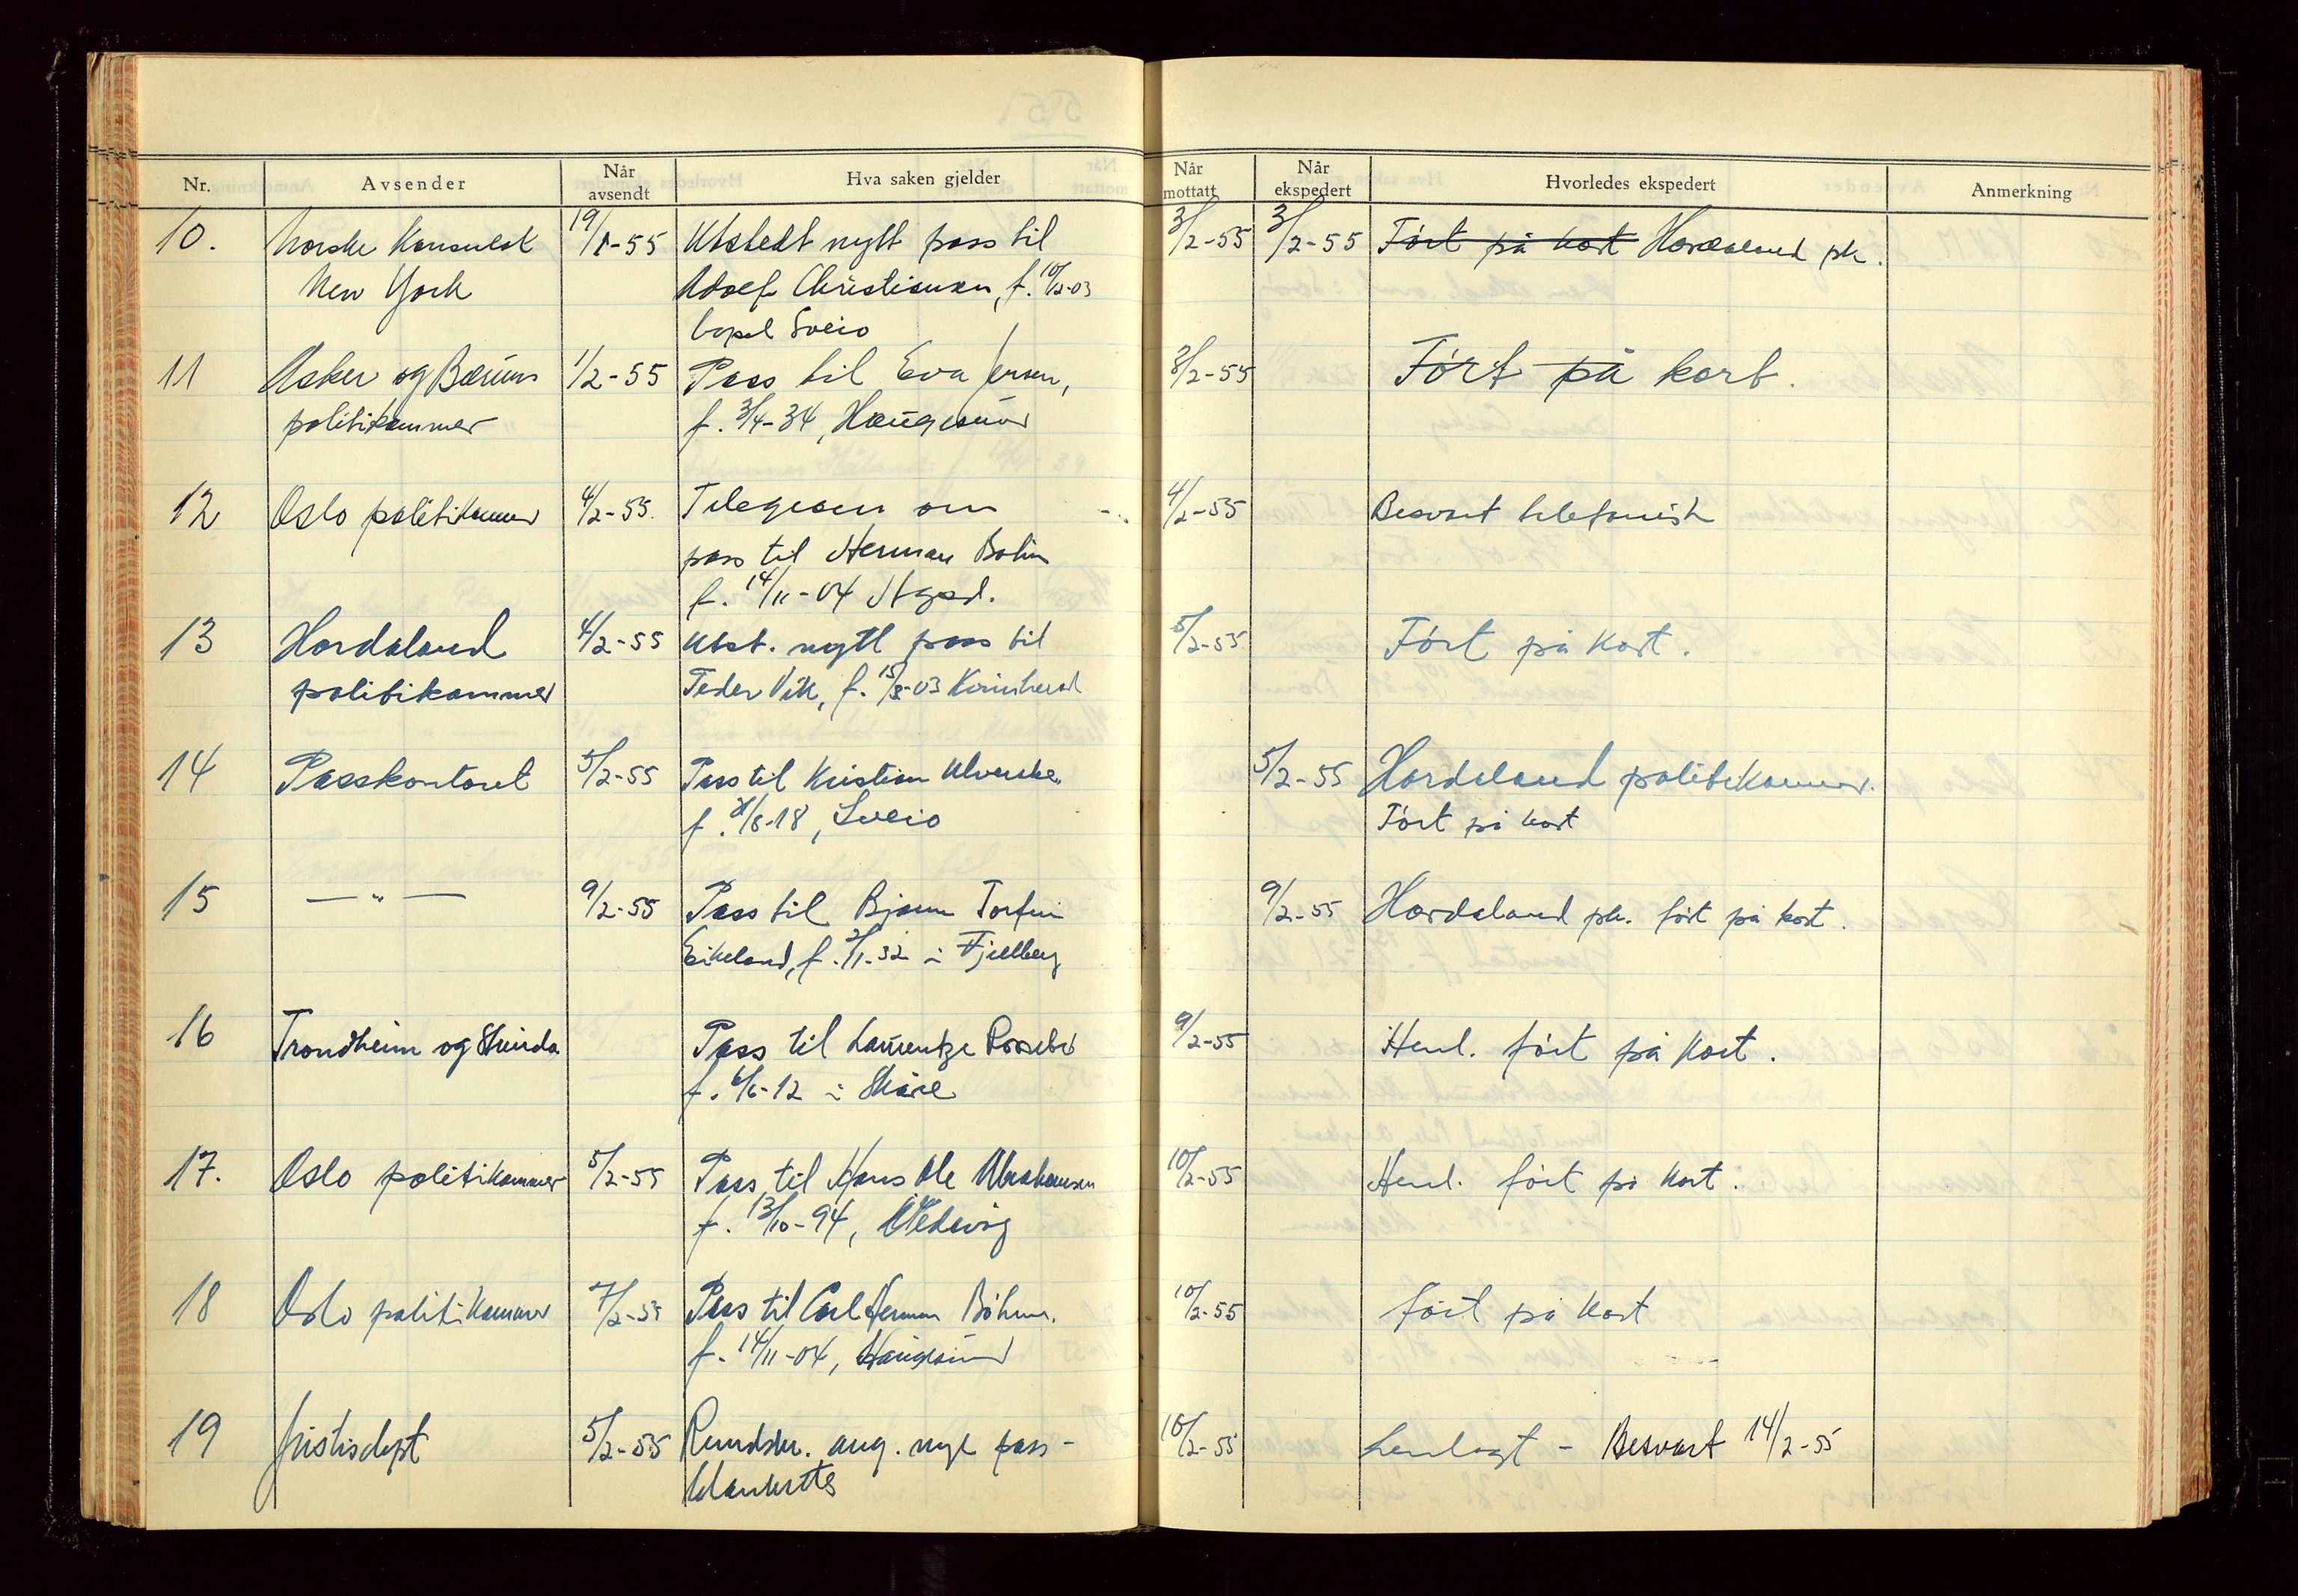 Nr. Avsender Når avsendt Hva saken gjelder Når mottatt Når ekspedert Hvorledes ekspedert Anmerkning
10. Norske Konsulat 19/1-55 Utstedt nytt pass til 3/2-55 3/2-55 Ført på kort Hordaland pk.
New York Adolf Christiansen, f. 10/2-03
bopel Sveio
11 Asker og Bærums 1/2-55 Pass til Eva Jensen, 3/2-55 Ført på kort.
politikammer f. 3/4-34, Haugesund
12 Oslo politikammer 4/2-55. Telegram om 4/2-55 Besvart telefonisk
pass til Herman Bohm
f. 14/11-04 Hgsd.
13 Hordaland 4/2-55 Utst. nytt pass til 5/2-55 Ført på kort.
politikammer Peder Vik, f. 15/8-03 Kvinherad
14 Passkontoret 5/2-55 Pass til Kristian 5/2-55 Hordaland politikammer.
f. /8-18, Sveio Ført på kort
15 — " — 9/2-55 Pass til Bjarne Torfin 9/2-55 Hordaland pk. ført på kort.
Eikeland, f. 2/1-32 i Fjellberg
16 Trondheim og Strinda Pass til Laurentze 9/2-55 Henl. ført på kort.
f. 6/6-12 i Skåre
17. Oslo politikammer 5/2-55 Pass til Hans Ole Abrahamsen 10/2-55 Henl. ført på kort.
f. 13/10-94, i Nedavåg
18 Oslo politikammer 7/2-55 Pass til Carl Herman Böhm. 10/2-55 ført på kort
f. 14/11-04, Haugesund
19 Justisdept 5/2-55 Rundskr. ang. nye pass- 10/2-55 henlagt - Besvart 14/2-55
blanketts